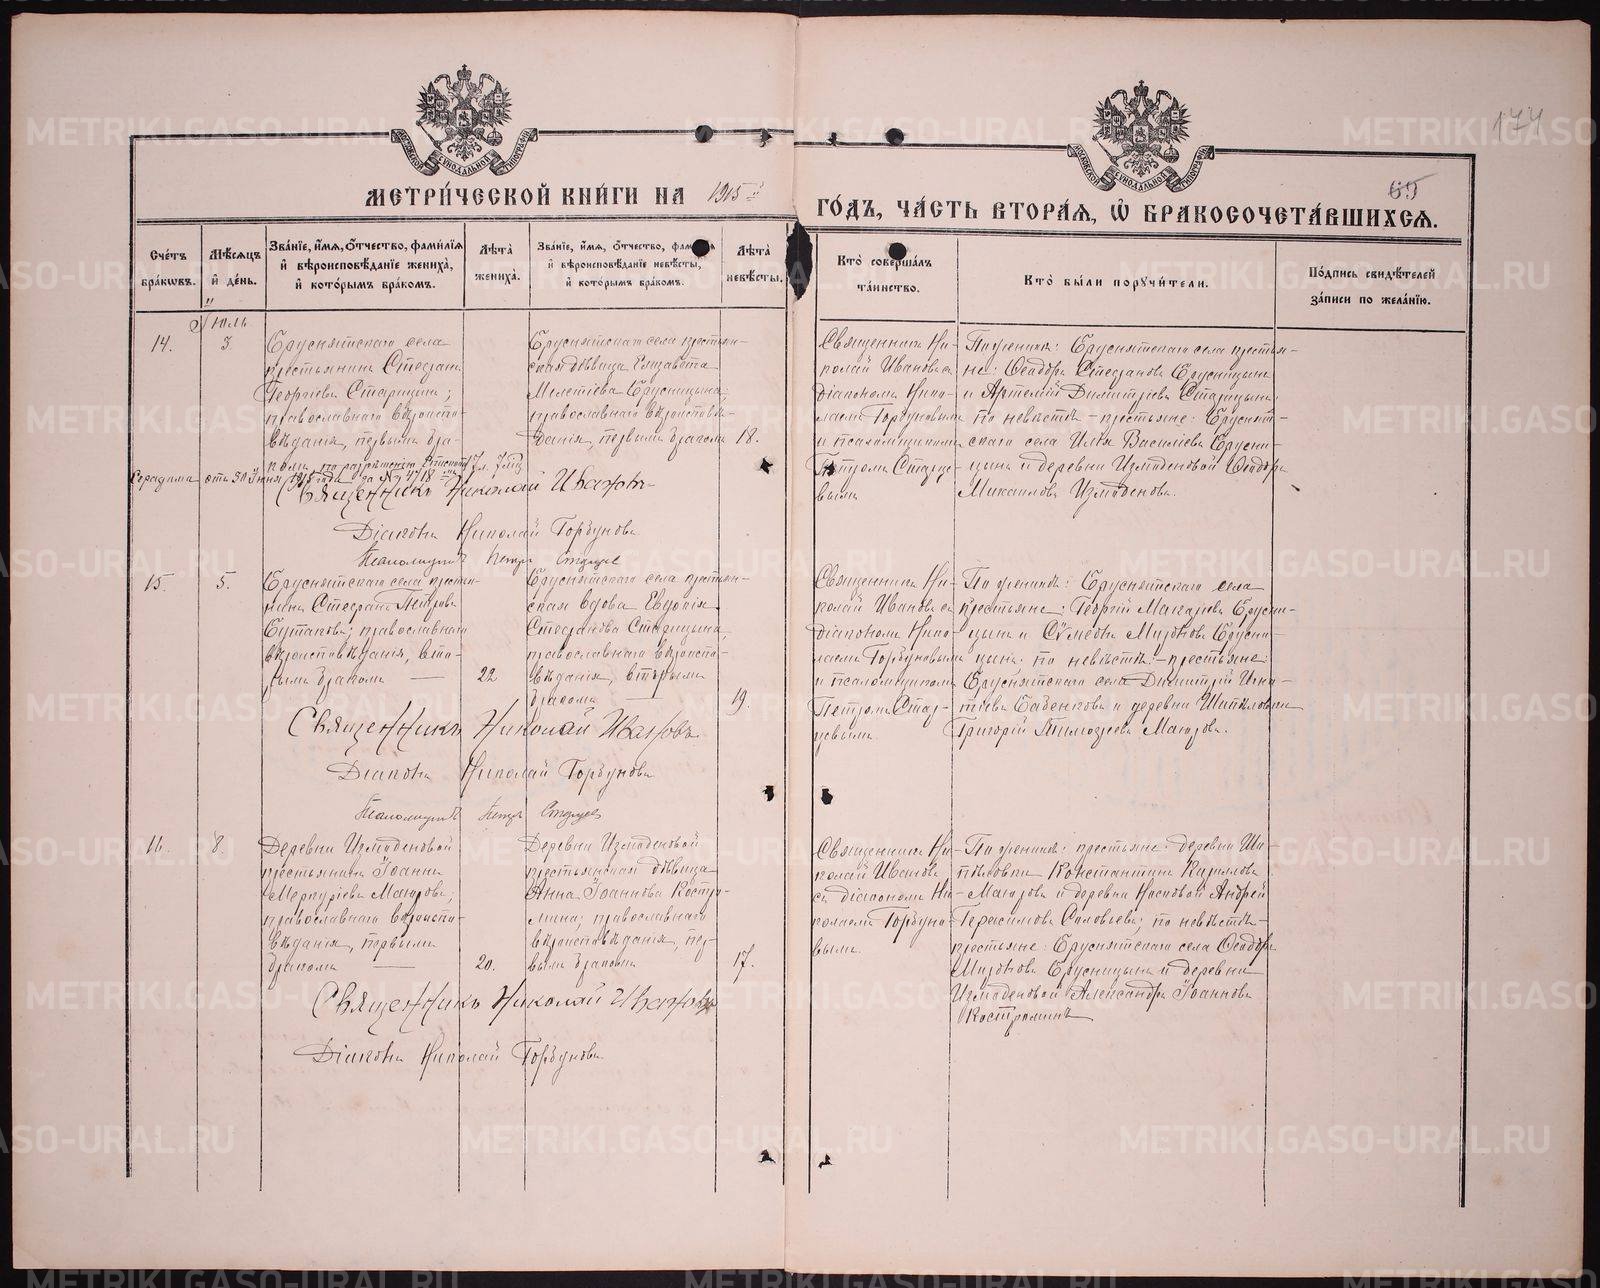 МЕТРИ́ЧЕСКОЙ КНИ́ГИ НА 1915й
ГО́ДЪ, ЧА́СТЬ ВТОРА́Я, Ѡ БРАКОСОЧЕТА́ВШИХСЯ.
174
65
Сче́тъ бра́кѡвъ.
Мѣ́сяцъ и де́нь.
Зва́нїе, и́мя, о́тчество, фами́лїя и вѣроисповѣ́данїе жениха̀, и кото́рымъ бра́комъ.
Лѣ́та жениха̀.
Зва́нїе, и́мя, о́тчество, фами́лїя и вѣроисповѣ́данїе невѣ́сты, и кото́рымъ бра́комъ.
Лѣ́та невѣ́сты.
Кто̀ соверша́лъ та́инство.
Кто̀ бы́ли поручи́тели.
По́дпись свидѣ́телей за́писи по жела́нїю.
Іюль
14.
3.
Бруснятскаго села
крестьянинъ Стефанъ
Георгіевъ Старицынъ;
православнаго вѣроиспо-
вѣданія, первымъ бра-
комъ, по разрѣшенію
17 л. 7 мѣс.
отъ 30 Іюня 1915 года за №
Бруснятскаго села крестьян-
ская дѣвица Елизавета
Мелетіева Брусницына;
православнаго вѣроисповѣ-
данія, первымъ бракомъ
18.
Священникъ Ни-
колай Ивановъ съ
діакономъ Нико-
лаемъ Горбуновымъ
и псаломщикомъ
Петромъ Старце-
вымъ
По женихѣ: Бруснятскаго села крестья-
не: Ѳеодоръ Стефановъ Брусницынъ
и Артемій Димитріевъ Старицынъ;
по невѣстѣ – крестьяне: Бруснят-
скаго села Илія Василіевъ Брусни-
цынъ и деревни Измоденовой Ѳеодоръ
Михаиловъ Измоденовъ.
Священникъ Николай Ивановъ
Діаконъ Николай Горбуновъ
Псаломщикъ Петръ Старцевъ
15.
5.
Бруснятскаго села крестья-
нинъ Стефанъ Петровъ
православнаго
вѣроисповѣданія, вто-
рымъ бракомъ —
22
Бруснятскаго села крестьян-
ская вдова Евдокія
Стефанова Старицына,
православнаго вѣроиспо-
вѣданія, вторымъ
бракомъ —
19.
Священникъ Ни-
колай Ивановъ съ
діакономъ Нико-
лаемъ Горбуновымъ
и псаломщикомъ
Петромъ Стар-
цевымъ.
По женихѣ: Бруснятскаго села
крестьяне: Георгій Макаровъ Брусни-
цынъ и Сѵмеонъ Мироновъ Брусни-
цынъ; по невѣстѣ: – крестьяне:
Бруснятскаго села Димитрій Игна-
тіевъ Бабенковъ и деревни Шипѣловки
Григорій Тимоѳеевъ Мазоровъ.
Священникъ Николай Ивановъ
Діаконъ Николай Горбуновъ
Псаломщикъ Петръ Старцевъ
16.
8.
Деревни Измоденовой
крестьянинъ Іоаннъ
Меркуріевъ Мазоровъ,
православнаго вѣроиспо-
вѣданія, первымъ
бракомъ —
20.
Деревни Измоденовой
крестьянская дѣвица
Анна Іоаннова Костро-
мина; православнаго
вѣроисповѣданія, пер-
вымъ бракомъ
17.
Священникъ Ни-
колай Ивановъ
съ діакономъ Ни-
колаемъ Горбуно-
вымъ.
По женихѣ: крестьяне: деревни Ши-
пѣловки Константинъ Кириловъ
Мазоровъ и деревни Носковой Андрей
Герасимовъ Соловьевъ; по невѣстѣ –
крестьяне: Бруснятскаго села Ѳеодоръ
Мироновъ Брусницынъ и деревни
Измоденовой Александръ Іоанновъ
Костроминъ
Священникъ Николай Ивановъ
Діаконъ Николай Горбуновъ
METRIKI.GASO-URAL.RU